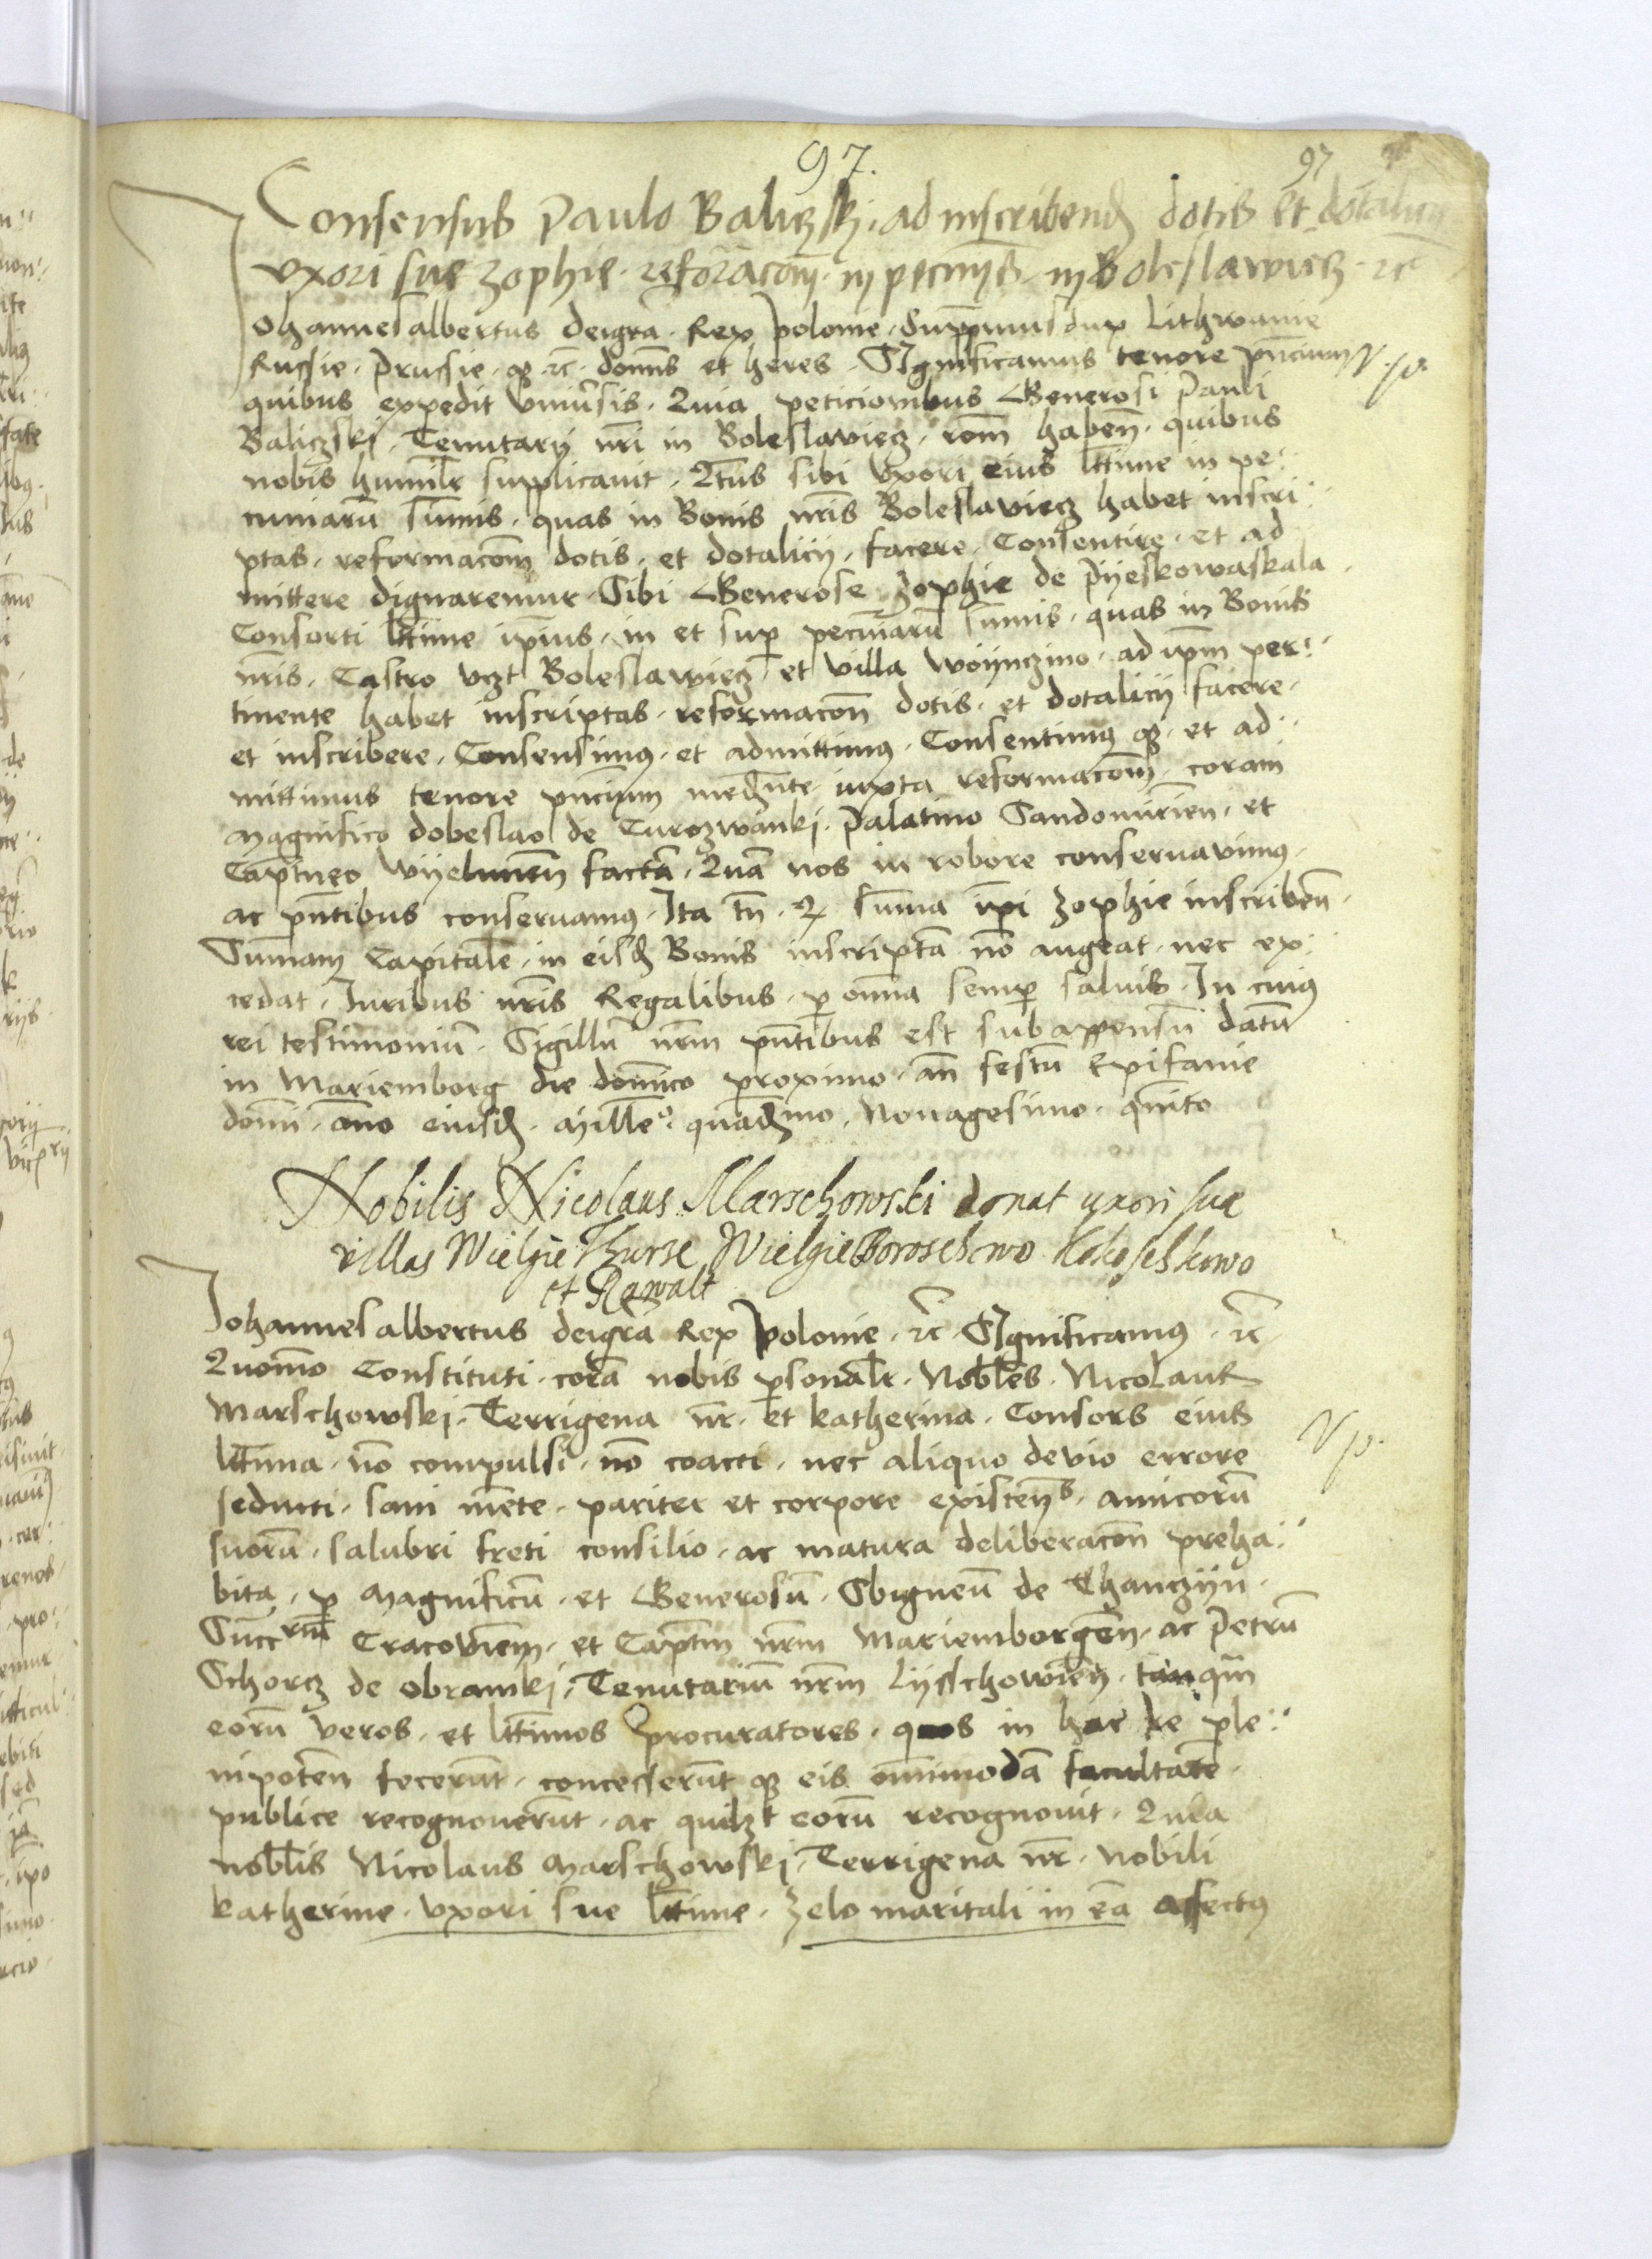 97.
97
Consensus Paulo Baliczskj. ad inscribend dotis et dotalicij
vxori sue Zophie. reforacom̄. in pecunijs. in Boleslawiecz. rc̄
Johannes albertus deigrā. Rex polonie. Suppremus dux Lithwanie
Russie. prussie. q̨ꝫ. rc̄. domn̄s et heres. SIgnificamus tenore pn̄cium
V. p.
quibus expedit vniūsis. Quia peticionibus Generosi Pauli
Baliczskj. Tenutarij nr̄i in Boleslaviecz. rom̄ haben̄. quibus
nobis humilr̄ supplicauit. Qtn̄s sibi vxori eius lt̄time in pe:
cuniarū sūmis. quas in Bonis nr̄is Boleslaviecz habet inscri:
ptas. reformacom̄ dotis. et dotalicij. facere. Consentire. et ad
mittere dignaremur. Sibi Generose Zophie de Pyeskowaskala.
Consorti lt̄time ip̄ius. in et sup̱ pecuniarū sūmis. quas in Bonis
nr̄is. Castro vcꝫt Boleslawiecz et villa Woijnczino. ad ip̄m per:
tinente habet inscriptas. reformacon̄ dotis. et dotalicij facere.
et inscribere. Consensimꝰ. et admittimꝰ. Consentimꝰ q̨ꝫ. et ad:
mittimus tenore pn̄cium medn̄te iuxta reformacom̄. coram
Magnifico dobeslao de Curozwankj. Palatino Sandomirien̄. et
Captneo Wijelunen̄ factā. Quā nos in robore conseruauimꝰ.
ac pn̄tibus conseruamꝰ. Ita tn̄. ꝙ sūma ip̄i Zophie inscriben̄.
Sūmam Capitalē. in eisd Bonis inscriptā nō augeat. nec ex:
cedat. Juribus nr̄is Regalibus. ꝑ om̄ia semꝑ saluis. In cuiꝰ
rei testimoniū. Sigillū nr̄m pn̄tibus est subappensū datū
in Mariemborg die domīco proximo. an̄ festū Epifanie
domī. āno eiusd. Mille͞o. quadmo. Nonagesimo. quīto
Nobilis Nicolaus Marschowski donat uxori suæ
villas Wielgie Thurze, Wielgie Boroschowo Kokoschkowo
et Rawalt
Johannes albertus deigrā Rex polonie. rc̄. SIgnificamꝰ. rc̄.
Quomō Constituti. corā nobis ꝑsonalr̄. Nobl̄es. Nicolaus
Marschowskj. Terrigena nr̄. et katherina. Consors eius
V p.
lt̄tima. nō compulsi. nō coacti. nec aliquo devio errore
seducti. sani mēte. pariter et corpore existen̄s. amicorū
suorū. salubri freti consilio. ac matura deliberacōn preha:
bita. ꝑ Magnificū. et Generosū. Sbigneū de Thanczijn.
Succrm̄ Cracovien̄. et Captm̄ nr̄m Mariemborgen̄. ac Petrū
Schorcz de obramkj. Tenutariū nr̄m Lijsschowien̄. tanqm̄
eorū veros. et lt̄timos procuratores. quos in hac re ple:
nipoten̄ fecerūt. concesserūt q̨ꝫ eis om̄imodā facultatē.
publice recognouerūt. ac quilzt eorū recognouit. Quia
nobl̄is Nicolaus Marschowskj. Terrigena nr̄. nobili
katherine. vxori sue lt̄time. zelo maritali in eā affectꝰ